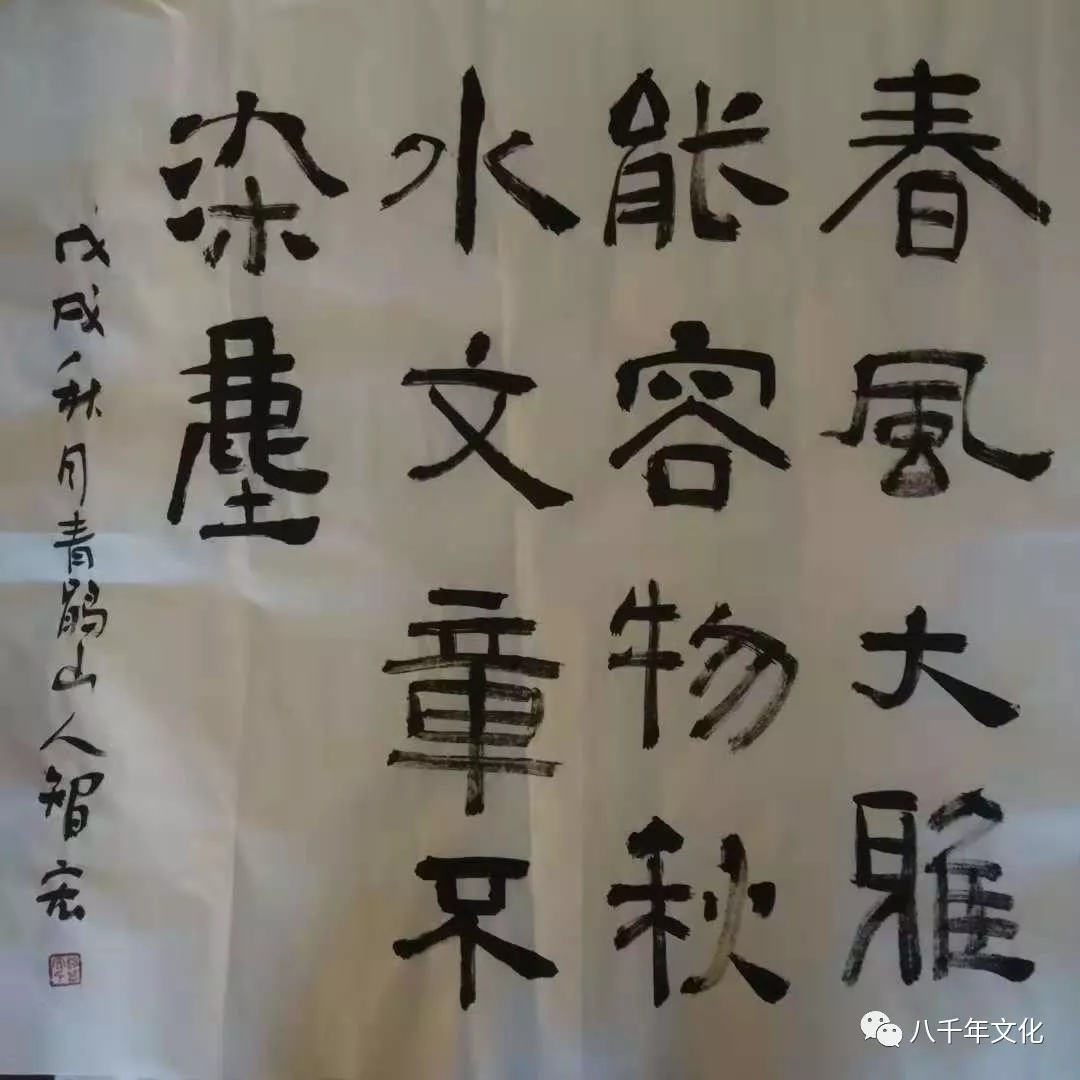 春風大雅
能容物秋
水文章不
染塵
戊戌秋月青鹃山人智宏
八千年文化